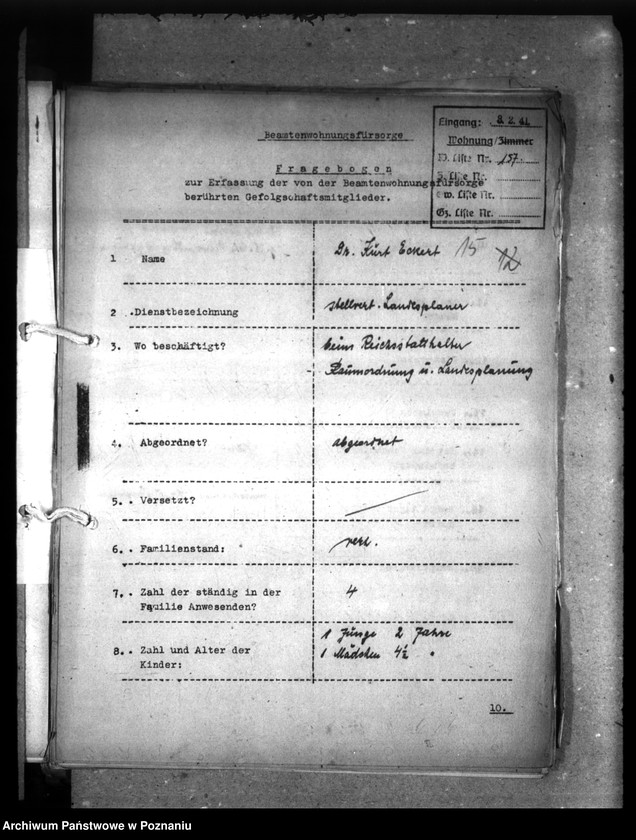 Eingang: 8. 2. 41.
Wohnung/Zimmer
W. Liste Nr. 157
Z. Liste Nr.
w. Liste Nr.
Gz. Liste Nr.
Beamtenwohnungsfürsorge
Fragebogen
zur Erfassung der von der Beamtenwohnungsfürsorge
berührten Gefolgschaftsmitglieder.
1 Name Dr. Kurt Eckert 15 12
2 .Dienstbezeichnung stellvert. Landesplaner
3. Wo beschäftigt? beim Reichsstatthalter
Raumordnung u. Landesplanung
4. Abgeordnet? abgeordnet
5. . Versetzt?
6. . Familienstand: verh.
7. . Zahl der ständig in der 4
Familie Anwesenden?
1 Junge 2 Jahre
8. . Zahl und Alter der 1 Mädchen 4½ "
Kinder:
10.
Archiwum Państwowe w Poznaniu